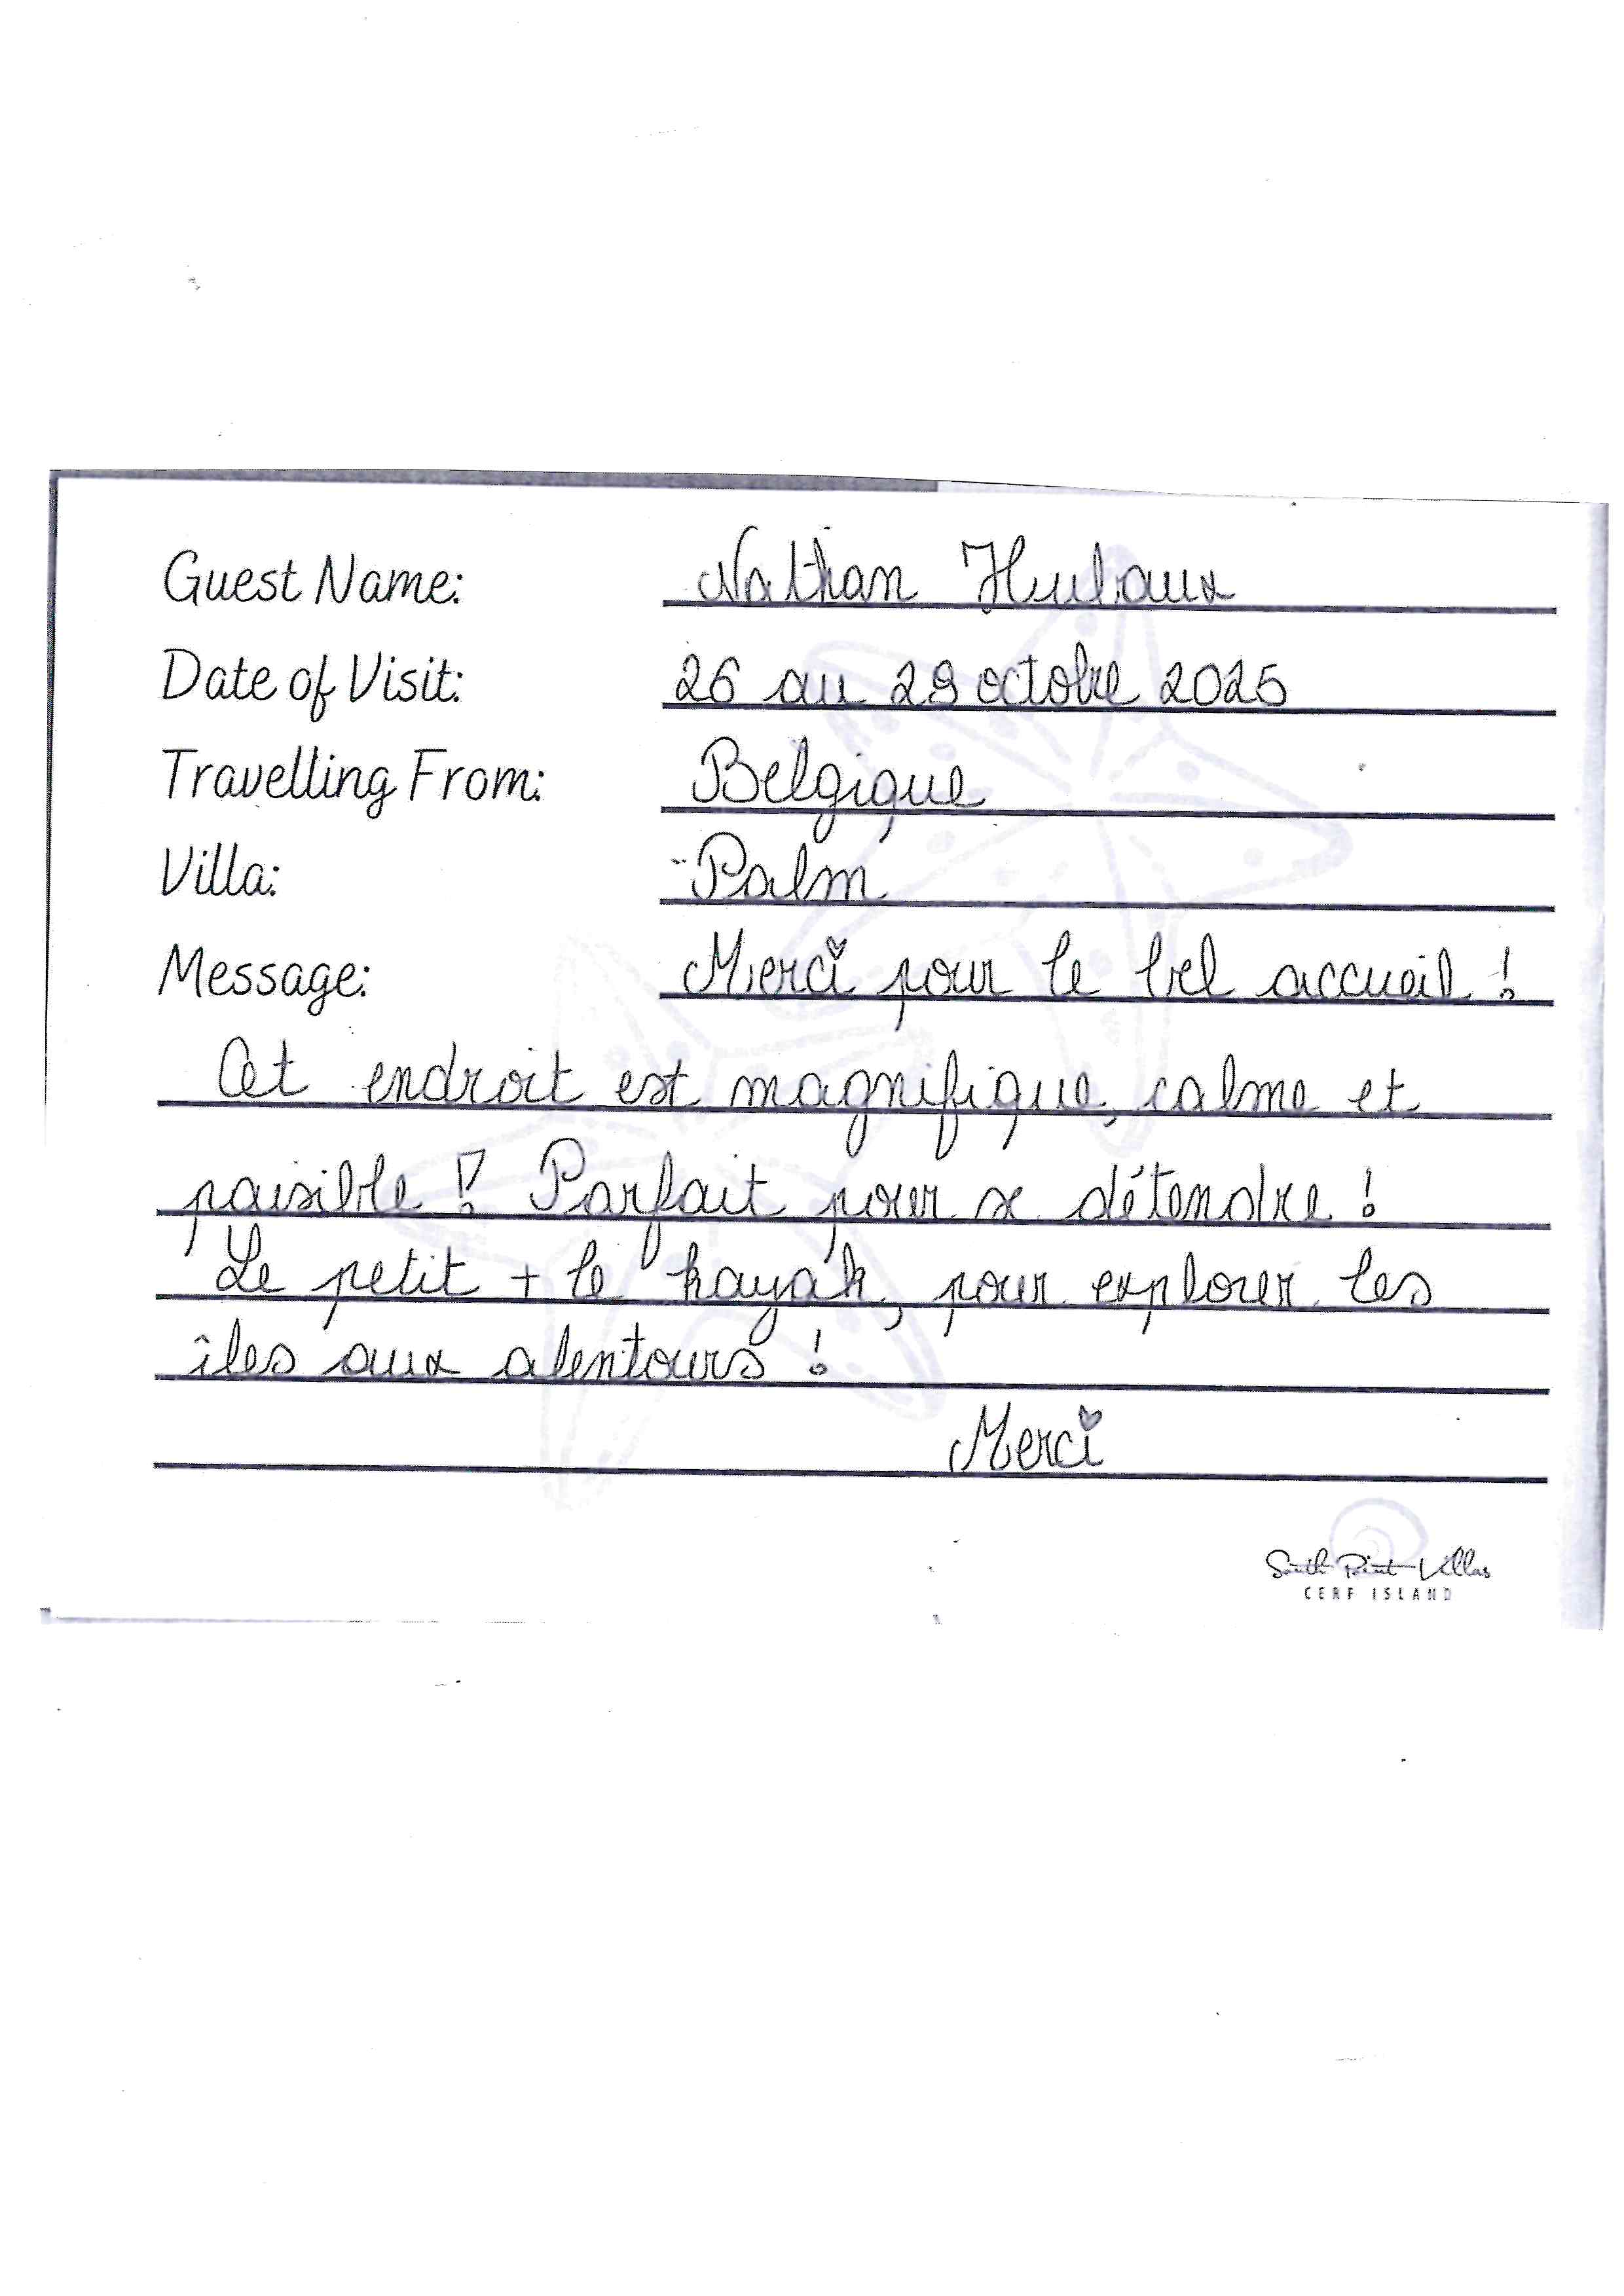 Guest Name: Nathan Hulaux
Date of Visit: 26 au 29 octobre 2025
Travelling From: Belgique
Villa: Palm
Message: Merci pour le bel accueil !
Cet endroit est magnifique, calme et
paisible ! Parfait pour se détendre !
Le petit + le kayak, pour explorer les
îles aux alentours !
Merci
South Point Villas
CERF ISLAND